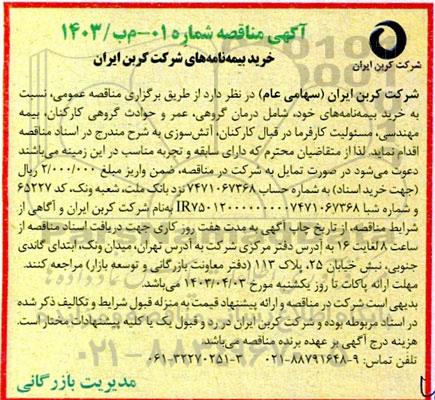 آگهی مناقصه شماره ۰۱-م‌ب/۱۴۰۳
خرید بیمه‌نامه‌های شرکت کربن ایران
شرکت کربن ایران
شرکت کربن ایران (سهامی عام) در نظر دارد از طریق برگزاری مناقصه عمومی، نسبت
به خرید بیمه‌نامه‌های خود، شامل درمان گروهی، عمر و حوادث گروهی کارکنان، بیمه
مهندسی، مسئولیت کارفرما در قبال کارکنان، آتش‌سوزی به شرح مندرج در اسناد مناقصه
اقدام نماید. لذا از متقاضیان محترم که دارای سابقه و تجربه مناسب در این زمینه می‌باشند
دعوت می‌شود در صورت تمایل به شرکت در مناقصه، ضمن واریز مبلغ ۲/۰۰۰/۰۰۰ ریال
(جهت خرید اسناد) به شماره حساب ۷۴۷۱۰۶۷۳۶۸ نزد بانک ملت، شعبه ونک، کد ۶۵۲۲۷
و شماره شبا IR۷۵۰۱۲۰۰۰۰۰۰۰۰۰۷۴۷۱۰۶۷۳۶۸ به‌نام شرکت کربن ایران و آگاهی از
شرایط مناقصه، از تاریخ چاپ آگهی به مدت هفت روز کاری جهت دریافت اسناد مناقصه از
ساعت ۸ لغایت ۱۶ به آدرس دفتر مرکزی شرکت به آدرس تهران، میدان ونک، ابتدای گاندی
جنوبی، نبش خیابان ۲۵، پلاک ۱۱۳ (دفتر معاونت بازرگانی و توسعه بازار) مراجعه کنند.
مهلت ارائه پاکات تا روز یکشنبه مورخ ۱۴۰۳/۰۴/۰۳ می‌باشد.
بدیهی است شرکت در مناقصه و ارائه پیشنهاد قیمت به منزله قبول شرایط و تکالیف ذکر شده
در اسناد مربوطه بوده و شرکت کربن ایران در رد و قبول یک یا کلیه پیشنهادات مختار است.
هزینه درج آگهی بر عهده برنده می‌باشد.
تلفن تماس: ۹-۸۸۷۹۱۶۴۸-۰۲۱ ۳-۳۲۲۷۰۲۵۱-۰۶۱
مدیریت بازرگانی